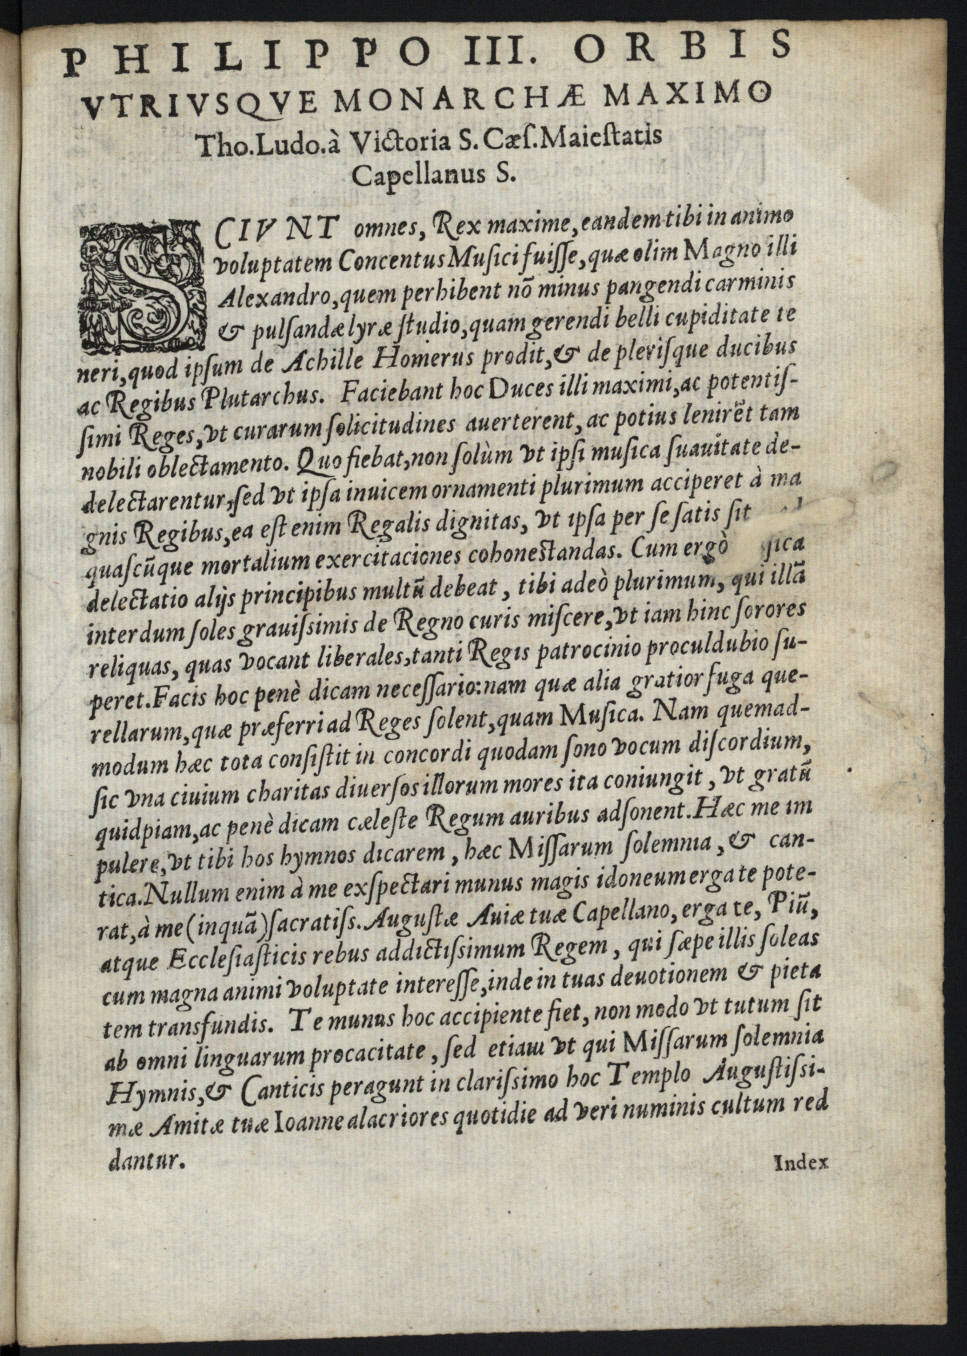 PHILIPPO III. ORBIS
VTRIVSQVE MONARCHÆ MAXIMO
Tho.Ludo.à Victoria S.Cæſ.Maieſtatis
Capellanus S.
SCIVNT omnes, Rex maxime,eandem tibi in animo
voluptatem Concentus Muſici fuiſſe,quæ olim Magno illi
Alexandro,quem perhibent nõ minus pangendi carminis
& pulſandæ lyræ ſtudio,quam gerendi belli cupiditate te
neri,quod ipſum de Achille Homerus prodit,& de pleriſque ducibus
ac Regibus Plutarchus. Faciebant hoc Duces illi maximi,ac potentiſ-
ſimi Reges,vt curarum ſolicitudines auerterent, ac potius lenirẽt tam
nobili oblectamento. Quo fiebat,non ſolùm vt ipſi muſica ſuauitate de-
delectarentur,ſed vt ipſa inuicem ornamenti plurimum acciperet à ma
gnis Regibus,ea eſt enim Regalis dignitas, vt ipſa per ſe ſatis ſit
quaſcũque mortalium exercitaciones cohoneſtandas. Cum ergò
delectatio alijs principibus multũ debeat, tibi adeò plurimum, qui illã
interdum ſoles grauiſsimis de Regno curis miſcere,vt iam hinc ſorores
reliquas, quas vocant liberales,tanti Regis patrocinio proculdubio ſu-
peret.Facis hoc penè dicam neceſſario:nam quæ alia gratior fuga que-
rellarum,quæ præferri ad Reges ſolent,quam Muſica. Nam quemad-
modum hæc tota conſiſtit in concordi quodam ſono vocum diſcordium,
ſic vna ciuium charitas diuerſos illorum mores ita coniungit, vt gratũ
quidpiam,ac penè dicam cæleſte Regum auribus adſonent.Hæc me im
pulere,vt tibi hos hymnos dicarem, hæc Miſſarum ſolemnia, & can-
tica.Nullum enim à me exſpectari munus magis idoneum erga te pote-
rat,à me (inquã) ſacratiſs.Auguſtæ Auiæ tuæ Capellano, erga te, Piũ,
atque Eccleſiaſticis rebus addictiſsimum Regem, qui ſæpe illis ſoleas
cum magna animi voluptate intereſſe,inde in tuas deuotionem & pieta
tem transfundis. Te munus hoc accipiente fiet, non modo vt tutum ſit
ab omni linguarum procacitate, ſed etiam vt qui Miſſarum ſolemnia
Hymnis,& Canticis peragunt in clariſsimo hoc Templo Auguſtiſsi-
mæ Amitæ tuæ Ioanne alacriores quotidie ad veri numinis cultum red
dantur.
Index